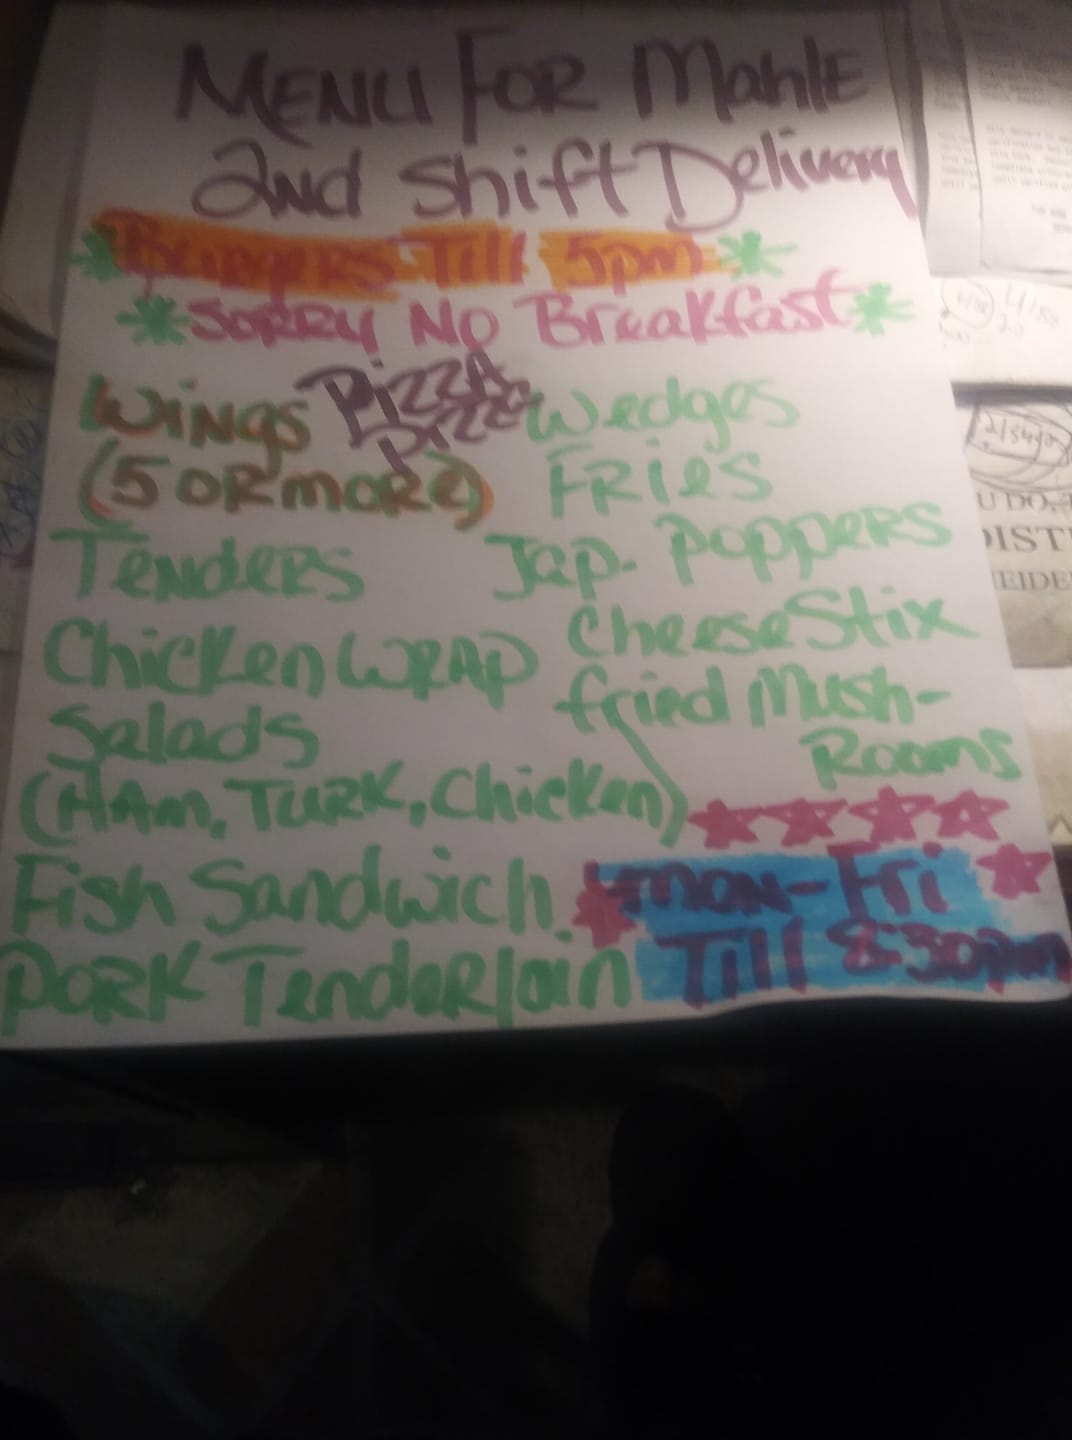 MENU FOR Mahle
2nd Shift Delivery
*Burgers Till 5pm*
*SORRY NO Breakfast*
WINGS
(5 OR more)
Pizza
Pizza
Tenders
Chicken WRAP
Salads
(HAm, TURK, Chicken)
Fish Sandwich
PORK Tenderloin
Wedges
FRies
Jap. Poppers
Cheese Stix
fried Mush-
Rooms
mon-Fri
Till 8:30pm
4/58
20
2/34
U DO,
DIST
EIDE